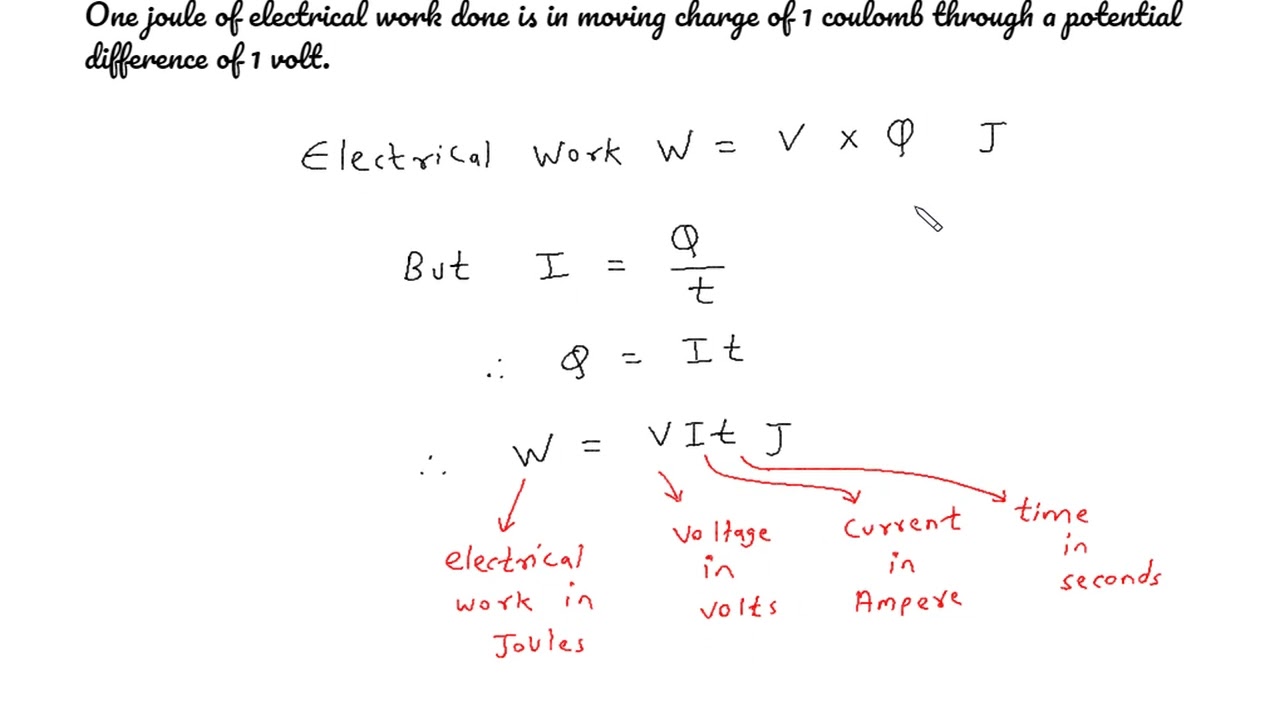 One joule of electrical work done is in moving charge of 1 coulomb through a potential
difference of 1 volt.
Electrical Work W = V x Q J
But I = Q/t
∴ Q = It
∴ W = VIt J
electrical
work in
Joules
Voltage
in
volts
Current
in
Ampere
time
in
seconds